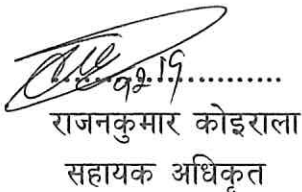 राजनकुमार कोइराला
सहायक अधिकृत